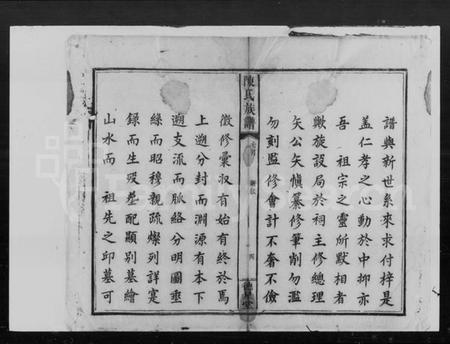 譜與新世系來求付梓是
蓋仁孝之心動於中抑亦
吾 祖宗之靈所默相者
歟旋設局於祠主修總理
矢公矢慎纂修筆削勿濫
勿刻監修會計不奢不儉
陳氏族譜
徵修彙收有始有終於焉
上遡分封而淵源有本下
遡支流而脈絡分明圖垂
綠而昭穆親疏燦列詳寔
錄而生歿墓配顯別墓繪
山水而 祖先之邱墓可